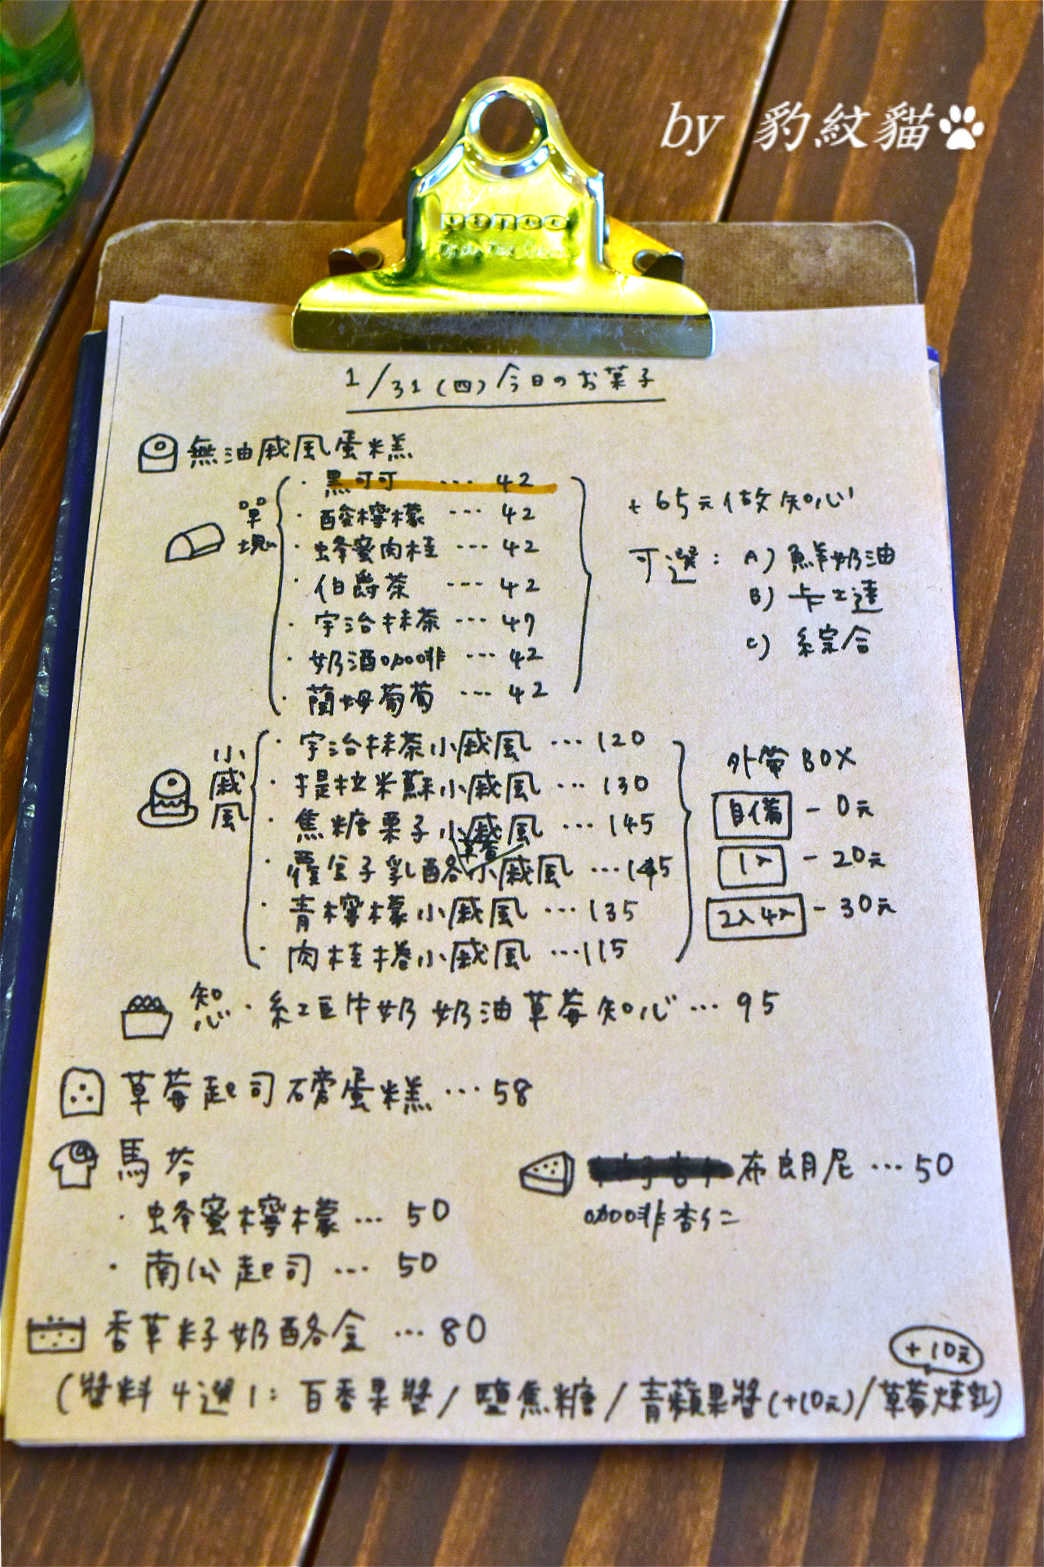 by 豹紋貓
penco
1/31(四)今日のお菓子
無油戚風蛋糕
單塊
·黑可可 ··· 42
·酸檸檬 ··· 42
·蜂蜜肉桂 ··· 42
·伯爵茶 ··· 42
·宇治抹茶 ··· 47
·奶酒咖啡 ··· 42
·蘭姆葡萄 ··· 42
+65元做知心
可選：A) 鮮奶油
B) 卡士達
C) 綜合
小戚風
·宇治抹茶小戚風 ··· 120
·提拉米蘇小戚風 ··· 130
·焦糖栗子小戚風 ··· 145
·覆盆子乳酪小戚風 ··· 145
·青檸檬小戚風 ··· 135
·肉桂捲小戚風 ··· 115
外帶BOX
自備 - 0元
1入 - 20元
2入4入 - 30元
知心·紅豆牛奶奶油草莓知心 ··· 95
草莓起司磅蛋糕 ··· 58
馬芬
·蜂蜜檸檬 ··· 50
·南瓜起司 ··· 50
布朗尼 ··· 50
咖啡杏仁
香草籽奶酪盒 ··· 80
+10元
(醬料4選1：百香果醬/鹽焦糖/青蘋果醬(+10元)/草莓煉乳)